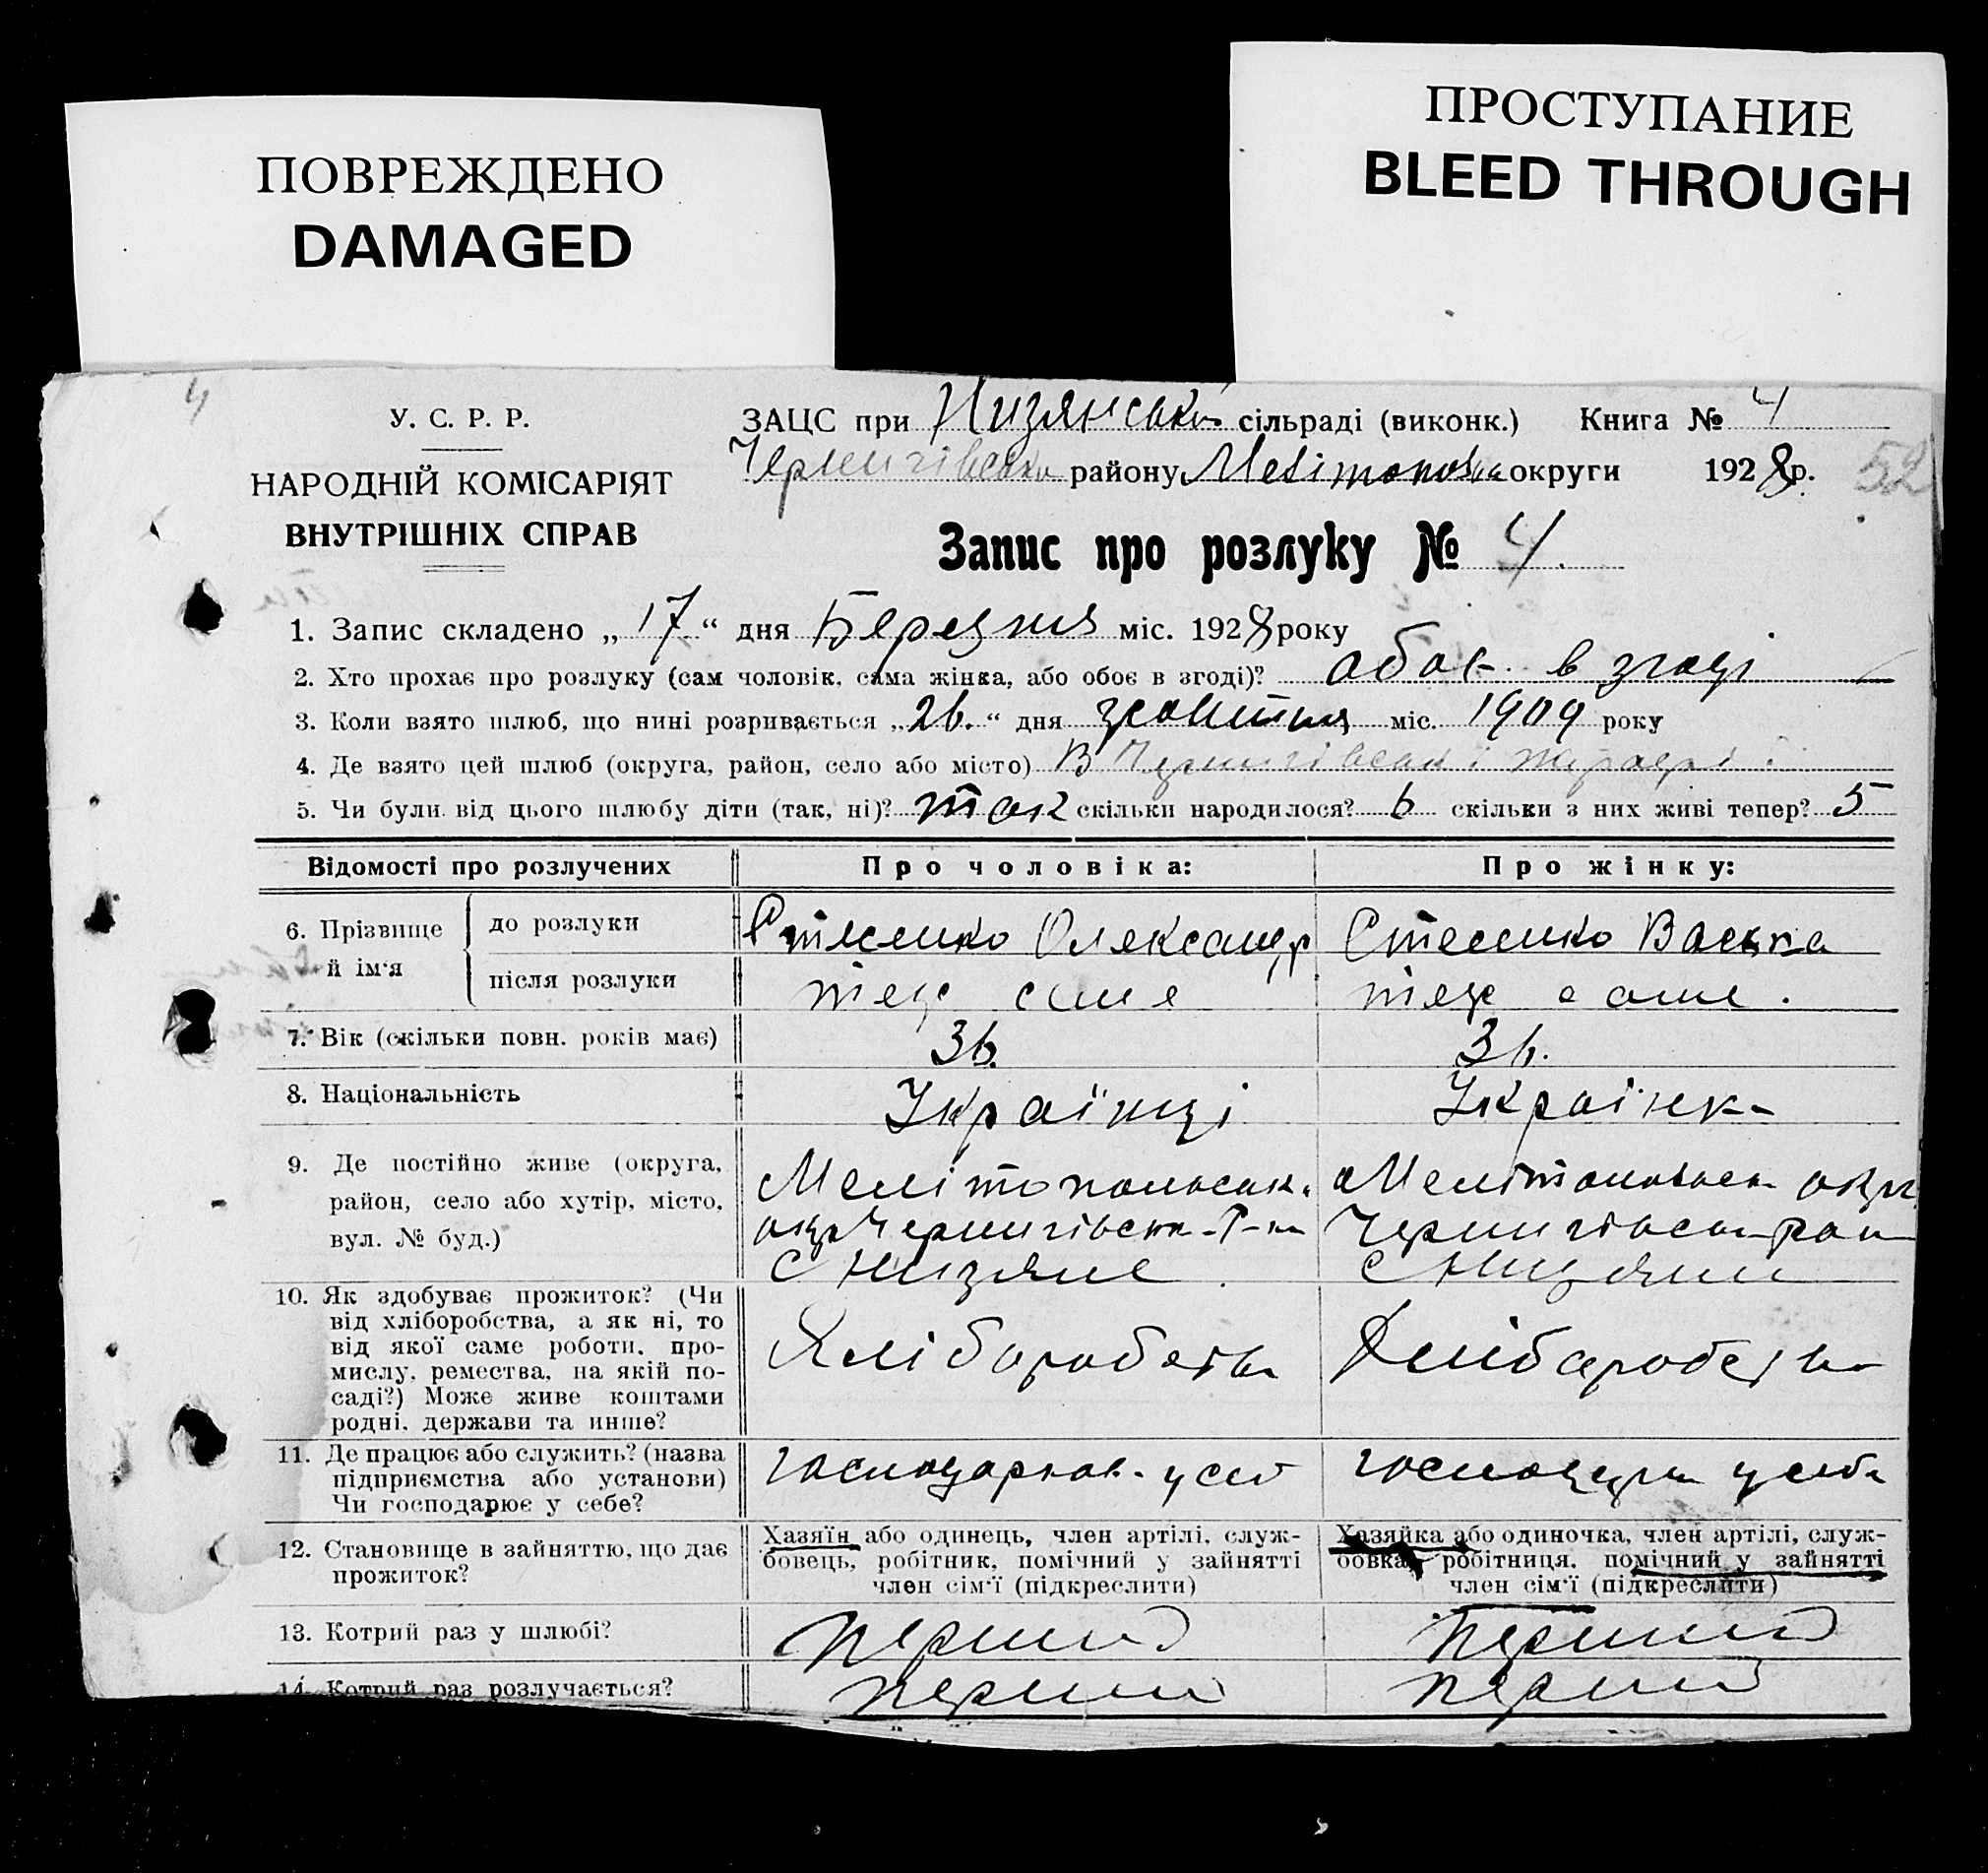 ПОВРЕЖДЕНО
DAMAGED
ПРОСТУПАНИЕ
BLEED THROUGH
4
У. С. Р. Р.
НАРОДНІЙ КОМІСАРІЯТ
ВНУТРІШНІХ СПРАВ
ЗАЦС при Низянській сільраді (виконк.) Книга № 4
Чернигівськ району Мелітопольськ округи 1928 р. 52
Запис про розлуку № 4.
1. Запис складено „ 17 “ дня Березня міс. 1928 року
2. Хто прохає про розлуку (сам чоловік, сама жінка, або обоє в згоді)? обоє в згоді
3. Коли взято шлюб, що нині розривається „ 26. “ дня жовтня міс. 1909 року
4. Де взято цей шлюб (округа, район, село або місто) В Чернигівськ
5. Чи були від цього шлюбу діти (так, ні)? так скільки народилося? 6 скільки з них живі тепер? 5
Відомості про розлучених
Про чоловіка:
Про жінку:
6. Прізвище й ім'я
до розлуки
Стеценко Олександр
Стеценко Васька
після розлуки
теж саме
теж саме.
7. Вік (скільки повн. років має)
36.
36.
8. Національність
Українці
Українка
9. Де постійно живе (округа,
район, село або хутір, місто,
вул. № буд.)
Мелітопольськ.
окр Чернигівськ. Р-н
С Низяне
Мелітопольськ окр
Чернигівськ рай
С Низяни
10. Як здобуває прожиток? (Чи
від хліборобства, а як ні, то
від якої саме роботи, про-
мислу, ремества, на якій по-
саді?) Може живе коштами
родні, держави та инше?
Хліборобств
Хліборобств
11. Де працює або служить? (назва
підприємства або установи)
Чи господарює у себе?
господарює у себ
господарю у себе
12. Становище в зайняттю, що дає
прожиток?
Хазяїн або одинець, член артілі, служ-
бовець, робітник, помічний у зайнятті
член сім'ї (підкреслити)
Хазяйка або одиночка, член артілі, служ-
бовка, робітниця, помічний у зайнятті
член сім'ї (підкреслити)
13. Котрий раз у шлюбі?
перший
перший
14. Котрий раз розлучається?
перший
перший